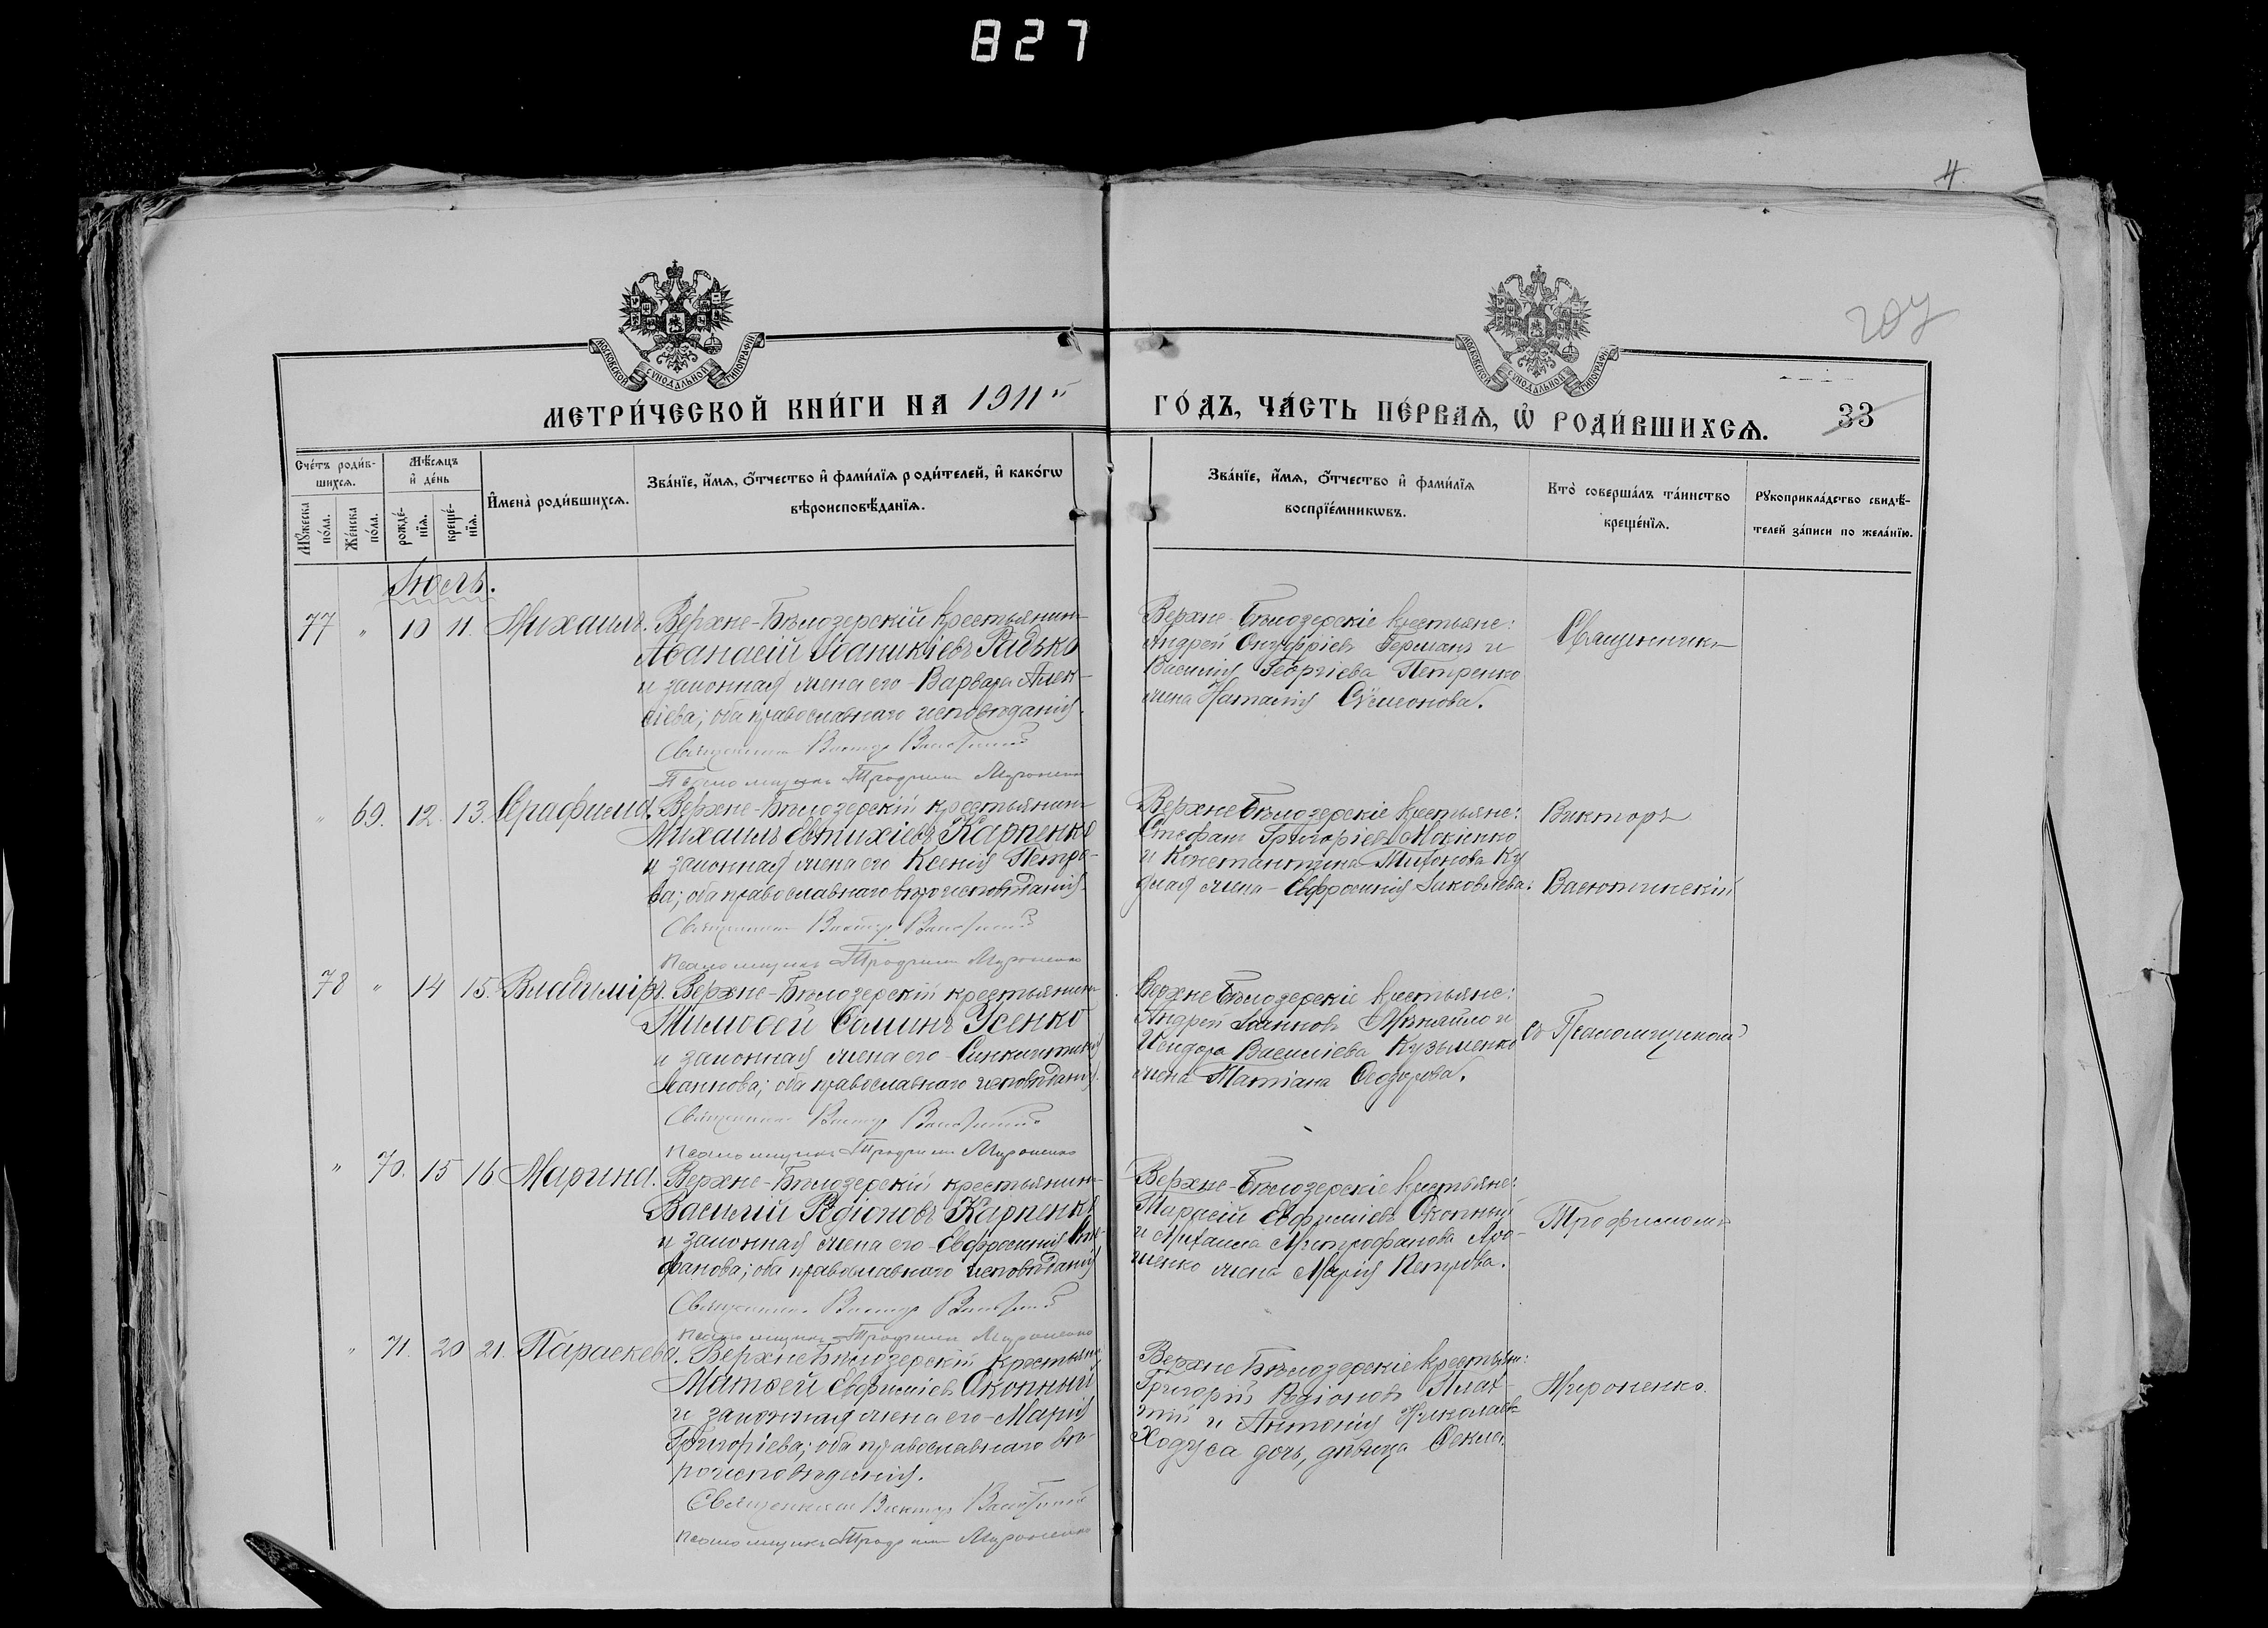 827
4
207
МОСКОВСКОЙ СѴНОДАЛЬНОЙ ТИПОГРАФІИ
МОСКОВСКОЙ СѴНОДАЛЬНОЙ ТИПОГРАФІИ
МЕТРИ́ЧЕСКОЙ КНИ́ГИ НА 1911й
ГО́ДЪ, ЧА́СТЬ ПЕ́РВАѦ, Ѡ҆ РОДИ́ВШИХСѦ.
33
Сче́тъ роди́в-
шихсѧ.
Мꙋ́жеска по́ла.
Же́нска по́ла.
Мѣ́сѧцъ
и҆ де́нь
рожде́-
нїѧ.
креще́-
нїѧ.
И҆мена̀ роди́вшихсѧ.
Зва́нїе, и҆́мѧ, ѻ҆́тчество и҆ фами́лїѧ роди́телей, и҆ како́гѡ
вѣроисповѣ́данїѧ.
Зва́нїе, и҆́мѧ, ѻ҆́тчество и҆ фами́лїѧ
воспрїе́мникѡвъ.
Кто̀ соверша́лъ та́инство
креще́нїѧ.
Рꙋкоприкла́дство свидѣ́-
телей за́писи по жела́нїю.
Іюль.
77 " 10 11. Михаилъ. Верхне-Бѣлозерскій крестьянинъ
Аѳанасій Іоаникіевъ Радько
и законная жена его Варвара Алек-
сіева; оба православнаго исповѣданія.
Священникъ Викторъ Васютинскій
Псаломщикъ Трофимъ Мироненко
Верхне-Бѣлозерскіе крестьяне:
Андрей Онуфріевъ Германъ и
Василія Георгіева Петренко
жена Наталія Сѵмеонова.
Священникъ
" 69. 12. 13. Серафима. Верхне-Бѣлозерскій крестьянинъ
Михаилъ Евтихіевъ Карпенко
и законная жена его Ксенія Петро-
ва; оба православнаго вѣроисповѣданія.
Священникъ Викторъ Васютинскій
Псаломщикъ Трофимъ Мироненко
Верхне Бѣлозерскіе крестьяне:
Стефанъ Григоріевъ Мокіенко
и Константина Тихонова Ку
жена - Евфросинія Іаковлева.
Викторъ
Васютинскій
78 " 14 15. Владиміръ. Верхне-Бѣлозерскій крестьянинъ
Тимоѳей Ѳоминъ Усенко
и законная жена его Синклитикія
Іоаннова; оба православнаго исповѣданія.
Священникъ Викторъ Васютинскій
Псаломщикъ Трофимъ Мироненко
Верхне Бѣлозерскіе крестьяне:
Андрей Іоанновъ и
Исидора Василіева Кузьменко
жена Татіана Ѳеодорова.
съ Псаломщикомъ
" 70. 15 16 Марина. Верхне-Бѣлозерскій крестьянинъ
Василій Родіоновъ Карпенко
и законная жена его Евфросинія
фанова; оба православнаго исповѣданія
Священникъ Викторъ Васютинскій
Псаломщикъ Трофимъ Мироненко
Верхне-Бѣлозерскіе крестьяне:
Тарасій Евфиміевъ Окопный
и Михаила Митрофанова
жена Марія Петрова.
Трофимомъ
" 71. 20 21. Параскева. Верхне Бѣлозерскій крестьянинъ
Матѳей Евфиміевъ Окопный
и законная жена его - Марія
Григоріева; оба православнаго вѣ-
роисповѣданія.
Священникъ Викторъ Васютинскій
Псаломщикъ Трофимъ Мироненко
Верхне Бѣлозерскіе крестьяне:
Григорій Родіоновъ Плах-
тій и Антонія Николаев.
Ходуса дочь, дѣвица Ѳекла.
Мироненко.